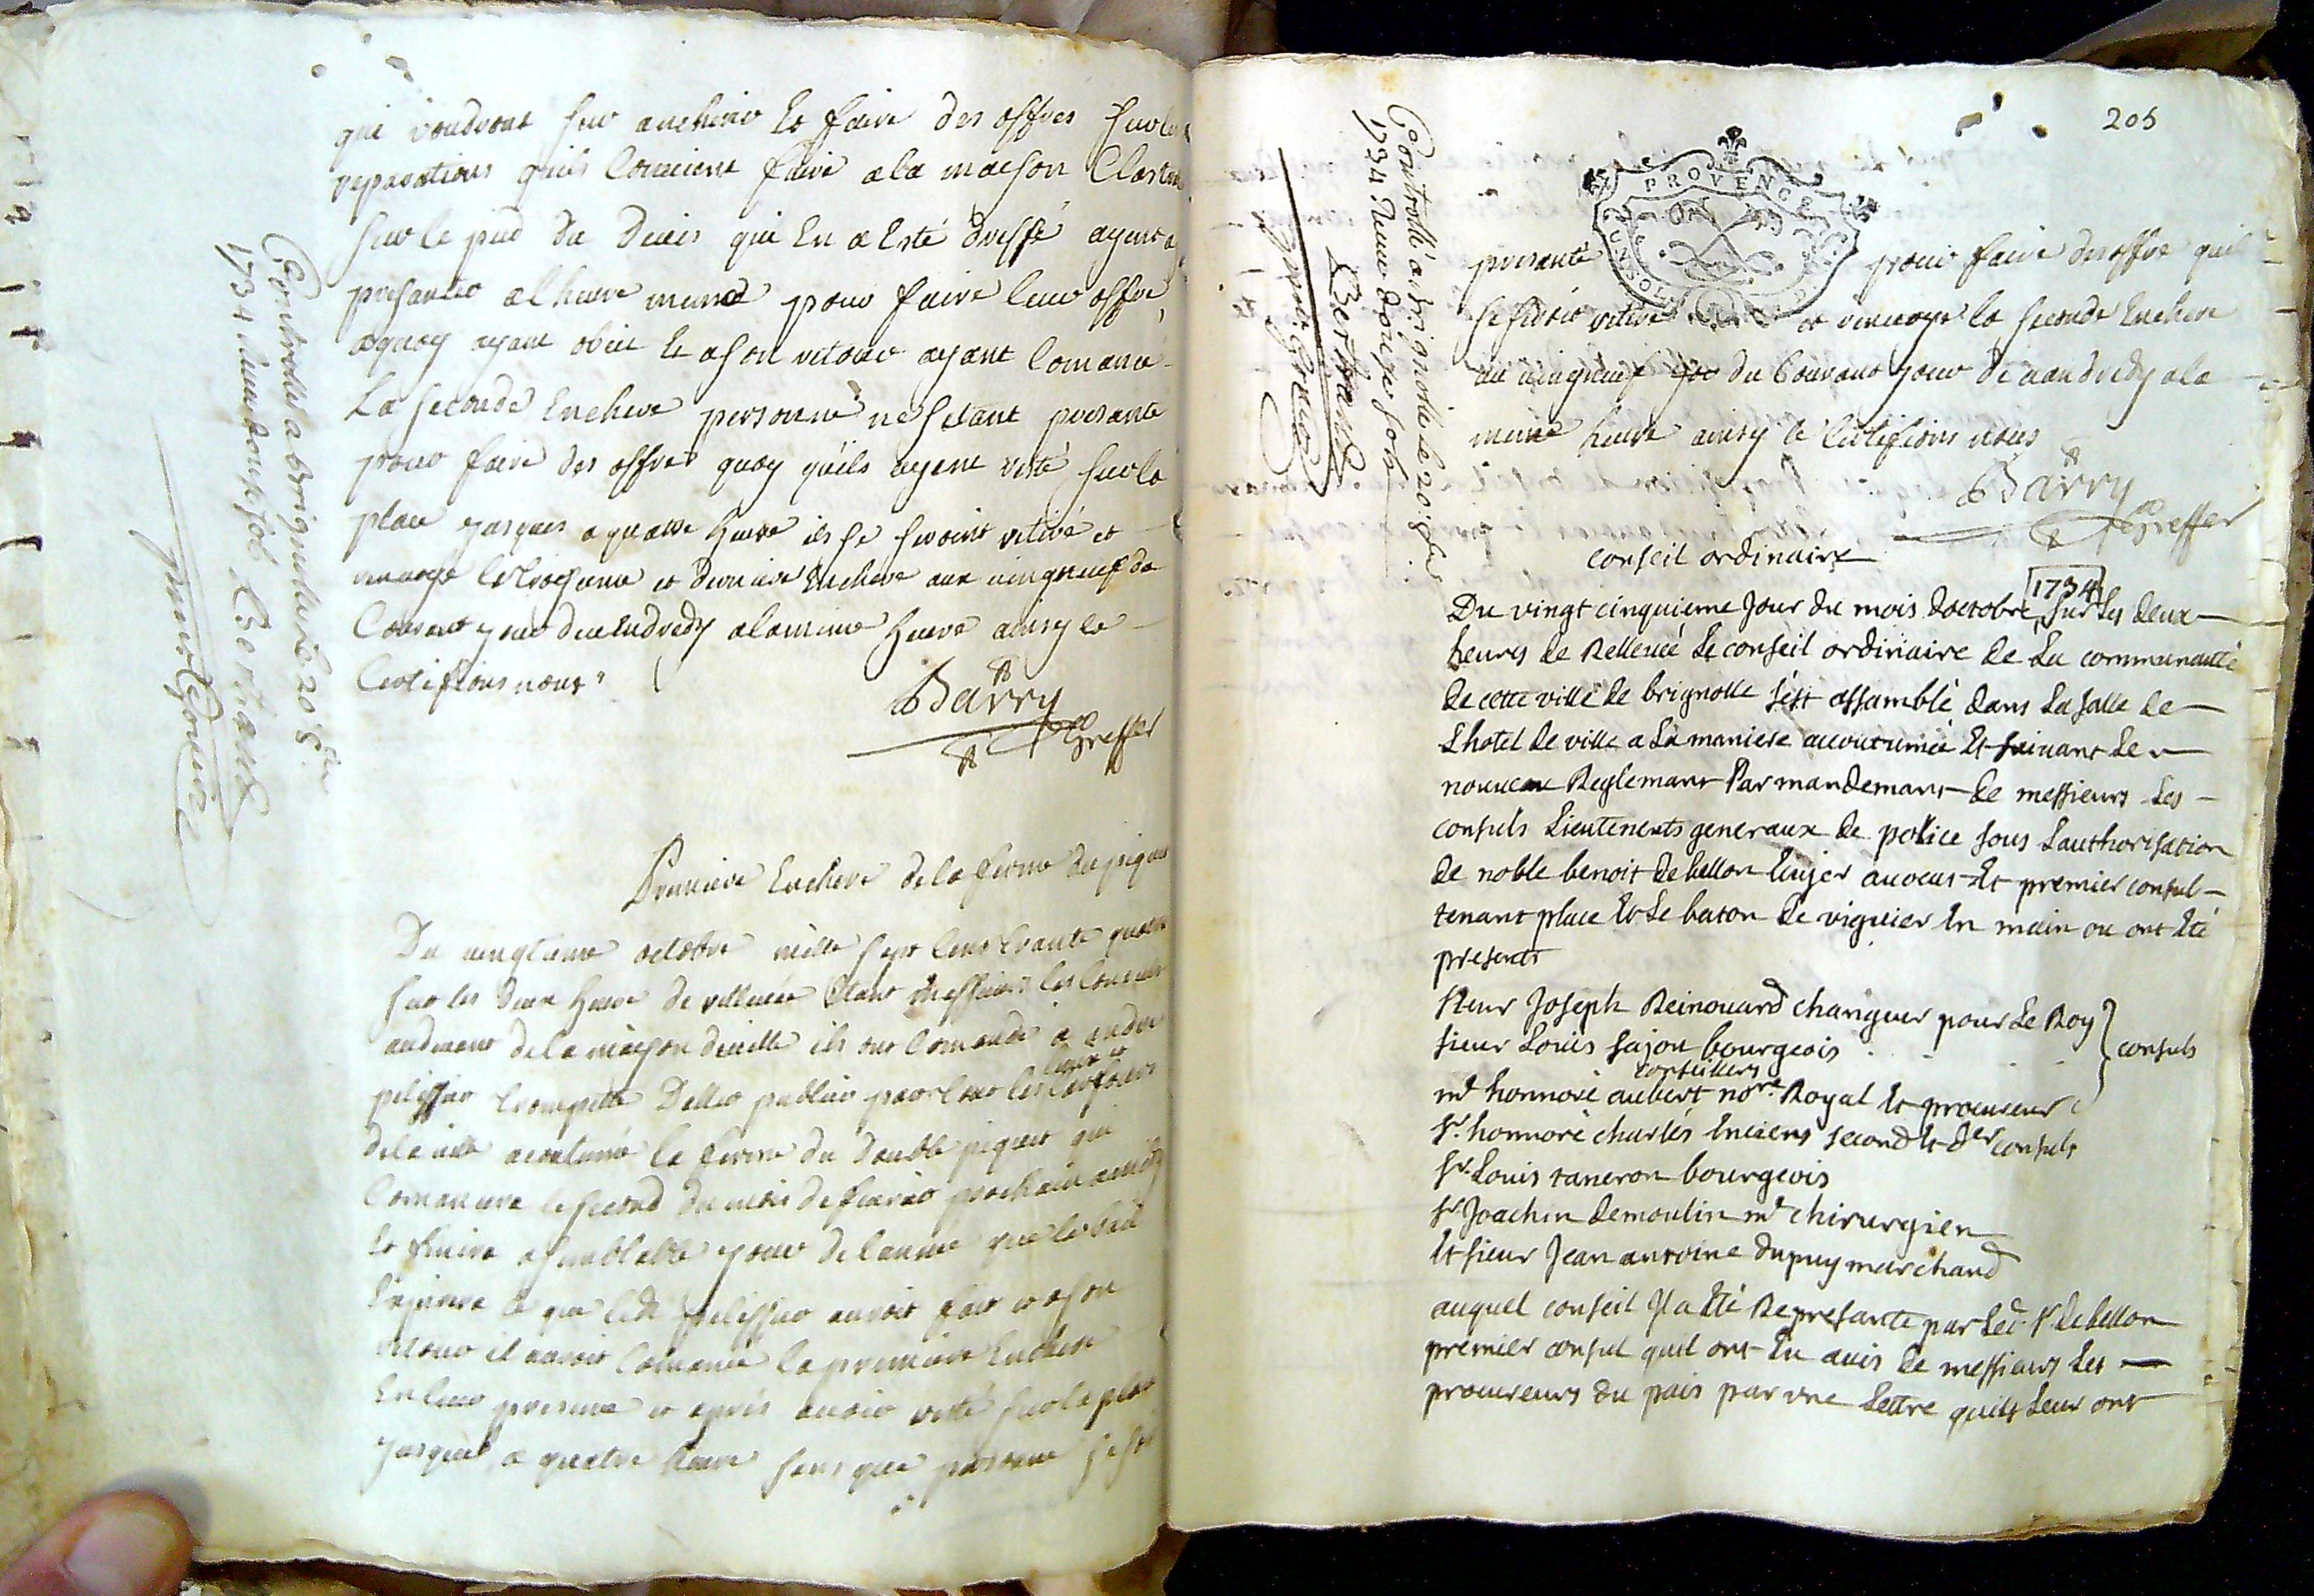 qui voudront sur encherir et faire des offres sur les
reparations quils convient faire a la maison
sur le pied du devis qui en a esté dressé
presanter a lheure mesme pour faire leur offre,
aquoy ayant obeit et a son retour ayant comancé
La seconde Enchere personne ne sétant presanté
pour faire des offres quoy quils ayent resté sur la
place jusques a quatre heure ils se seroint retiré et
renvoyé et derniere Enchere aux vingtneuf du
Courant jour de vendredy a la mesme heure ainsy le
Certiffions nous
Barry
Greffier
Controllé a Brignolle le 20 8bre
1734 Receu douze sols Bertrand
Premiere Enchere de la ferme du piquet
Du vingtieme octobre mille sept cens trante quatre
sur les deux heure de rellevée étant messieurs les Consuls
audevant de la maison de ville ils ont comandé a
pelissier trompette Daller publier par tous les
lieux et
Carrefours
de la ville acoutumé la ferme du double piquet qui
Comancera le second du mois de fevrier prochain
et finira a semblable jour de lannée que le bail
Expirera ce que ledit pelissier auroit fait et a son
retour il auroit comancé la premiere Enchere
En leur presence et aprés avoir resté sur la place
jusques a quatre heure sans que personne se soit
205
PROVENCE
presanté pour faire des offre quil
se seroit retiré et renvoyé la seconde Enchere
au vingtneuf du Courant jour de vandredy a la
meme heure ainsy le Certiffions nous
Barry
Greffier
Controllé a Brignolle le 20 8bre
1734 Receu douze sols
Bertrand
conseil ordinaire
1734
Du vingt cinquieme Jour du mois doctobre, sur Les deux
heures de Rellevée Le conseil ordinaire de La communauté
de cette ville de brignolle sést assamblé dans La salle de
Lhotel de ville a La maniere accoutumée Et suivant Le
nouveau Reglemant Par mandemant de messieurs Les
consuls Lieutenents generaux de police sous Lauthorisation
de noble benoit de bellon Ecuyer avocat Et premier consul
tenant place Et Le baton de viguier En main ou ont Eté
presents
sieur Joseph Reinouard changeur pour Le Roy
sieur Louis sajou bourgeois
consuls
conseillers
me honnoré aubert nore Royal Et procureur
sr. honnoré charles Enciens second Et der consuls
sr. Louis taneron bourgeois
sr Joachin demoulin me chirurgien
Et sieur Jean antoine dupuy marchand
auquel conseil Il a Eté Represanté par Led. sr. de bellon
premier consul quil ont Eu avis de messieurs Les
procureurs du païs par une Lettre quils Leur ont